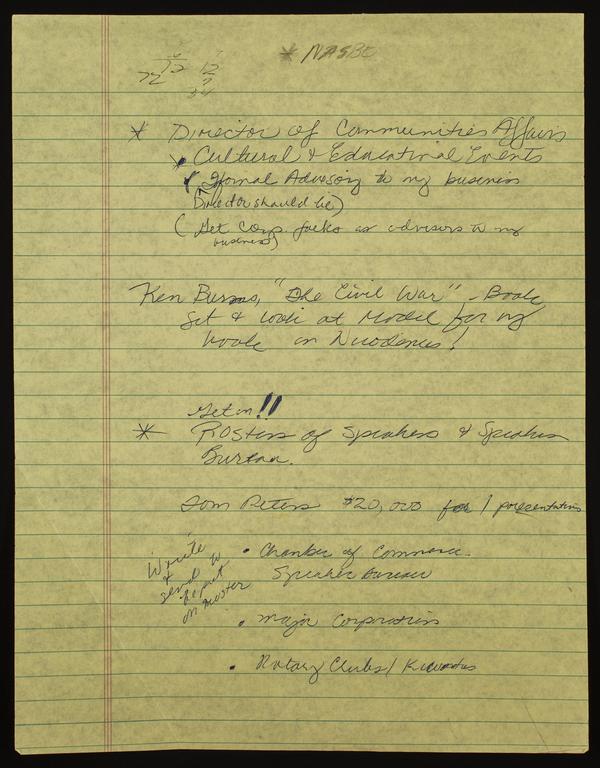 * NASBE
72 12 12
7
84
* Director of Communities Affairs
* Cultural & Educational Events
( Formal Advisory to my business
Director should be)
( Get Corp. folks as advisors to my
business)
Ken Burns, "The Civil War" - Book
Get & look at Model for my
book on Nicodemus!
Get on!!
* Rosters of Speakers & Speakers
Bureau.
Tom Peters $20,000 for 1 presentation
Write
&
send to
be put
on roster
• Chamber of Commerce
Speaker Bureau
• Major Corporations
• Rotary Clubs / Kiwanis